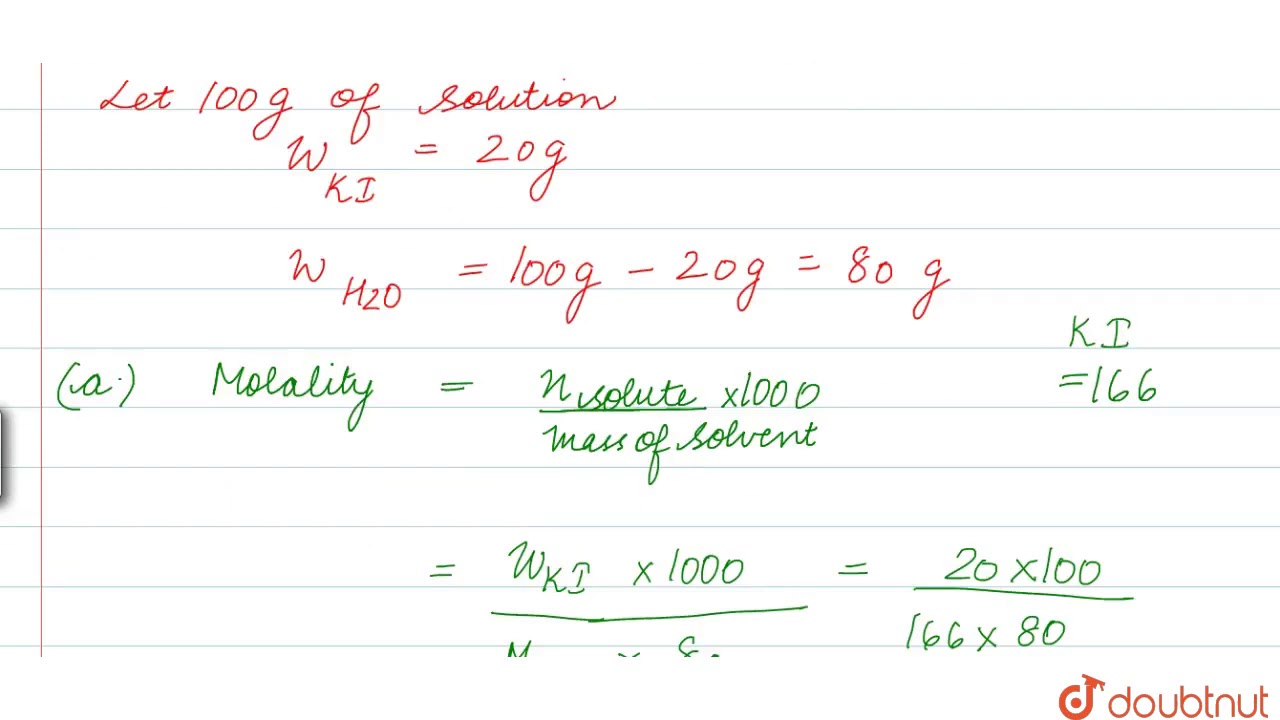 Let 100g of solution
W KI = 20g
W H2O = 100g - 20g = 80 g
KI
= 166
(a.) Molality = n solute x1000
mass of solvent
= W KI x 1000 = 20 x 100
166 x 80
doubtnut